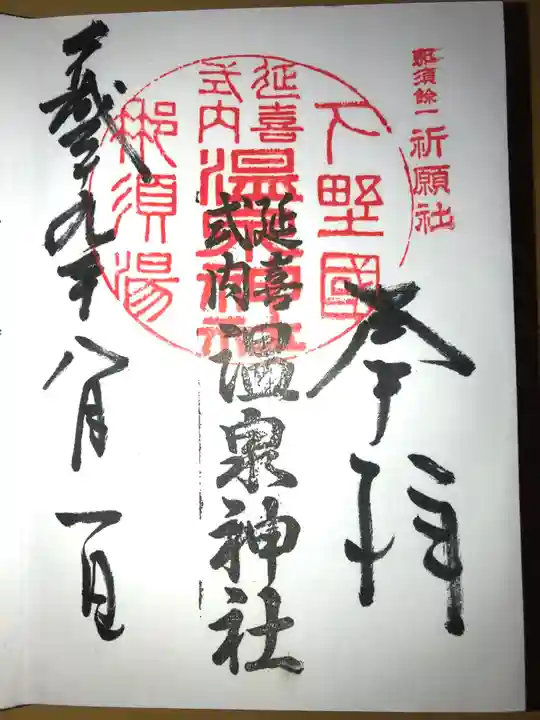 那須餘一祈願社
奉拝
下野國
延喜
式内
温泉神社
那須湯
延喜
式内
温泉神社
八月一日